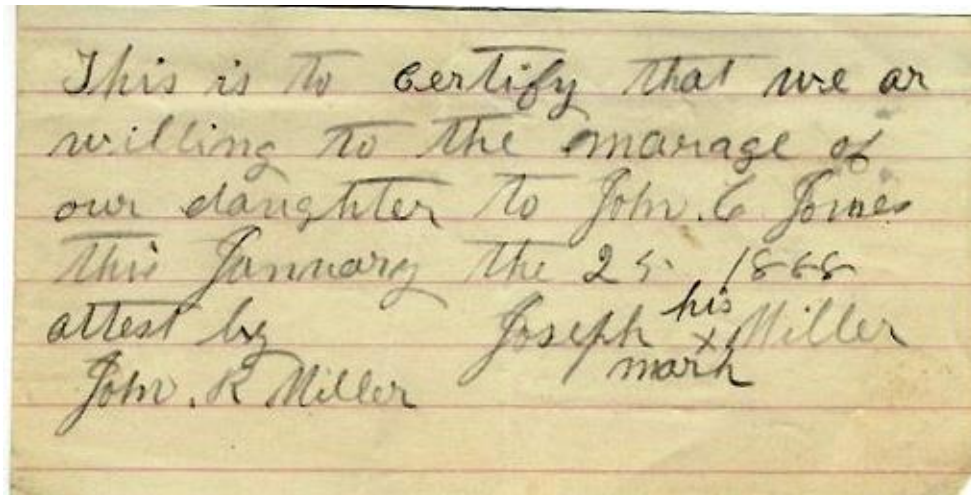 This is to certify that we ar
willing to the marage of
our daughter to John. C Jones
this January the 25. 1888
attest by Joseph his x mark Miller
John. R Miller